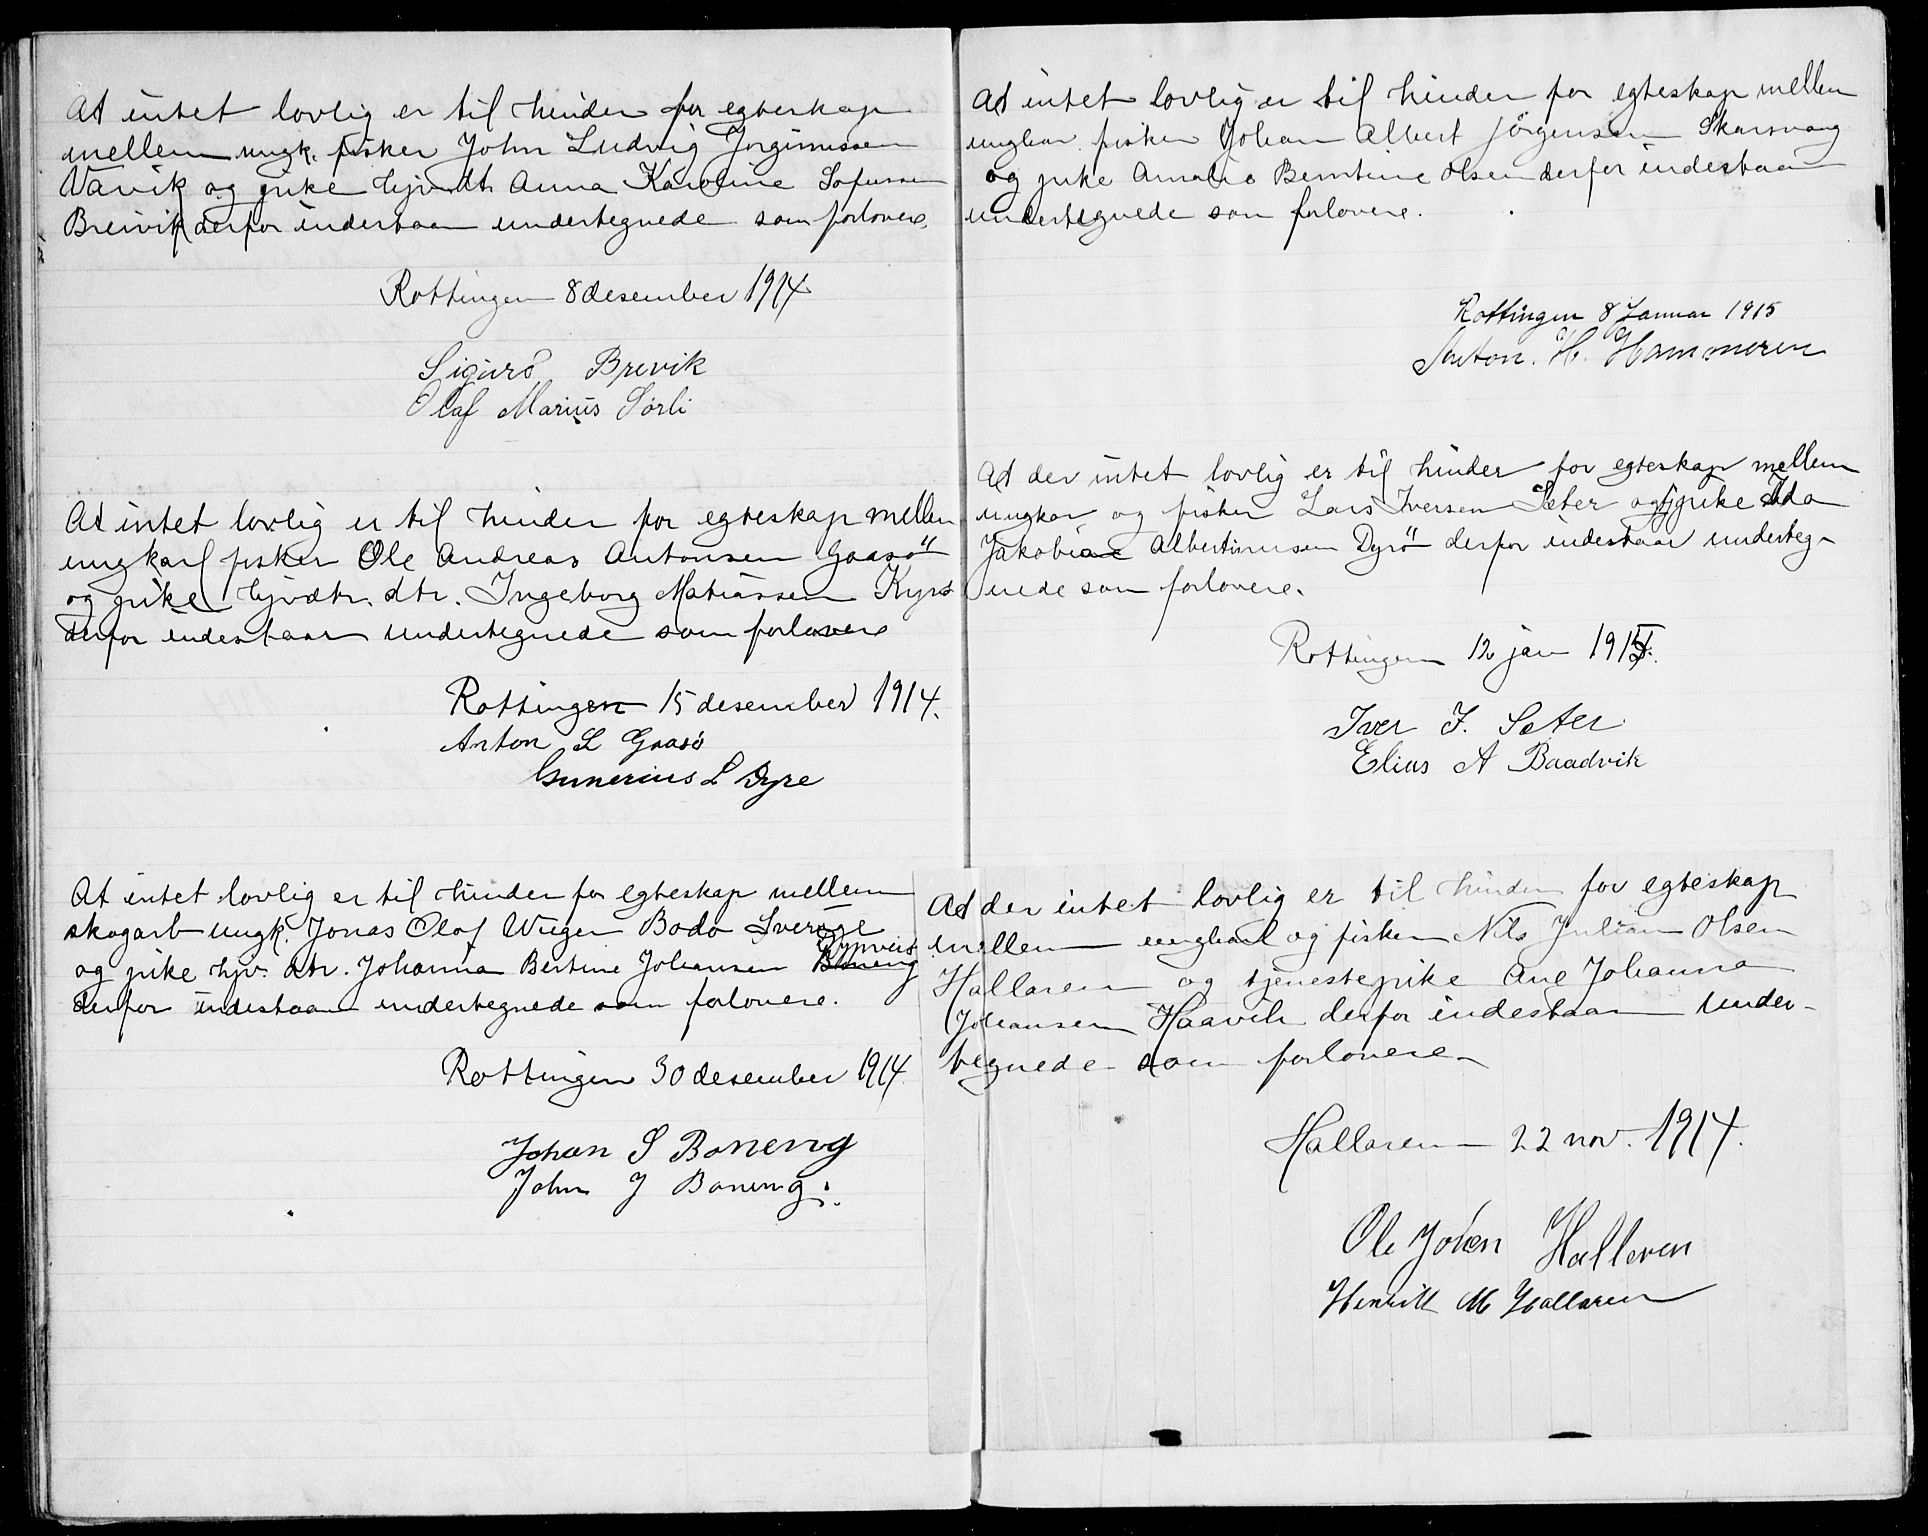 At intet lovlig er til hinder for egteskap
mellem ungk. fisker John Ludvig Jørginussen
Vavik og pike hjv. dt. Anna Karoline Sofussen
Breivik derfor indestaar undertegnede som forlovere.
Rottingen 8 desember 1914
Sigurd Brevik
Olaf Marius Sörli
At intet lovlig er til hinder for egteskap mellem
ungkarl fisker Ole Andreas Antonsen Gaasö
og pike hjv dtr. dtr. Ingeborg Matiassen
derfor indestaar undertegnede som forlovere
Rottingen 15 desember 1914.
Anton L Gaasö
Gunerius L Dyre
At intet lovlig er til hinder for egteskap mellem
skogarb ungk. Jonas Olof Bodo Sverige
og pike hjv. dtr. Johanna Bertine Johansen
derfor indestaar undertegnede som forlovere.
Rottingen 30 desember 1914
Johan S Boneng
John J Boneng.
At intet lovlig er til hinder for egteskap mellem
ungkar fisker Johan Albert Jörgensen Skarsvaag
og pike Amalie Berntine Olsen derfor indestaar
undertegnede som forlovere.
Rottingen 8 Januar 1915
Anton. H. Hammeren
At der intet lovlig er til hinder for egteskap mellem
ungkar og fisker Lars Iversen Seter og pike Ida
Jakobine Albertinusen Dyrö derfor indestaar underteg-
nede som forlovere.
Rottingen 12 jan 1915.
Iver J. Seter
Elias A Baadvik
At der intet lovlig er til hinder for egteskap
mellem ungkarl og fisker Nils Julian Olsen
Hallaren og tjenestepike Ane Johanna
Johansen Haavik derfor indestaar under-
tegnede som forlovere.
Hallaren 22 nov. 1914.
Ole Johan Hallaren
Henrik M Hallaren